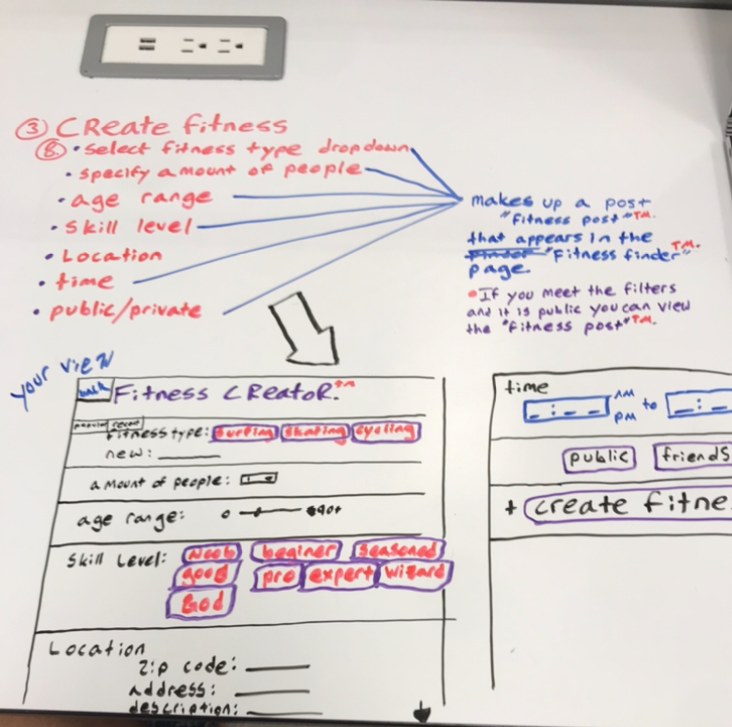 ③ Create fitness
⑧ • select fitness type dropdown
• specify amount of people
• age range
• skill level
• Location
• time
• public/private
makes up a post
"fitness post"TM.
that appears in the
"Fitness finder"TM.
page.
• If you meet the filters
and it is public you can view
the "fitness post"TM.
your view
back
Fitness Creator.TM
popular recent
fitness type: surfing skating cycling
new:
amount of people: 1
age range: 0 90+
Skill Level: Noob beginer seasoned
good pro expert wizard
God
Location
zip code:
address:
description:
time
_ : _ _ AM PM to _ : _
public friends
+ create fitne